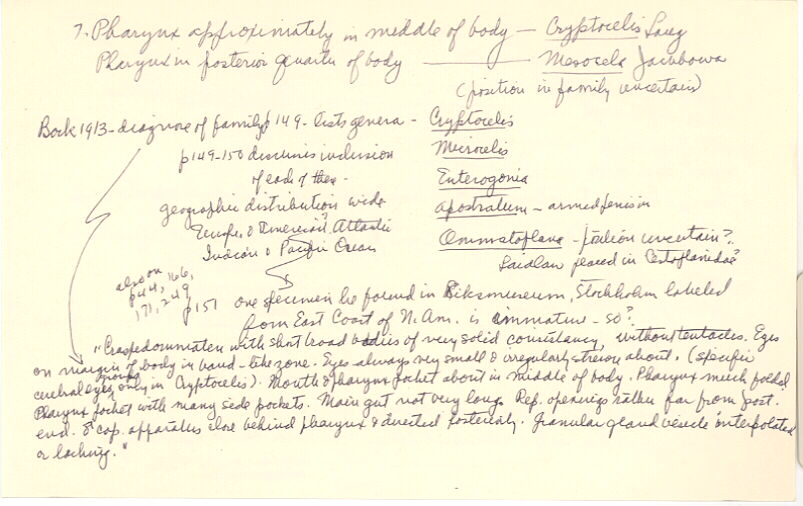 7. Pharynx approximately in middle of body — Cryptocelis Lang
Pharynx in posterior quarter of body —— Mesocela Jacubowa
(position in family uncertain)
Bock 1913 - diagnose of family p 149 - lists genera - Cryptocelis
p149-150 discusses inclusion Microcelis
of each of these - Enterogonia
geographic distribution wide Apostratum - armed penis
Europe & American? Atlantic Ommatoplana - position uncertain?
Indian & Pacific Ocean Laidlaw placed in Cestoplanidae?
also on
p44, 166,
171, 249
p151 one specimen he found in Riksmuseum, Stockholm labeled
from East Coast of N. Am. is immature - so?
"Craspedommaten with short broad bodies of very solid consistancy, without tentacles. Eyes
on margin of body in band-like zone. Eyes always very small & irregularly strewn about. (specific
cerebral eye groups only in Cryptocelis). Mouth & pharynx pocket about in middle of body. Pharynx much folded
Pharynx pocket with many side pockets. Main gut not very long. Rep. openings rather far from post.
end. ♂ cop. apparatus close behind pharynx & directed posteriorly. Granular gland vesicle interpolated
or lacking."